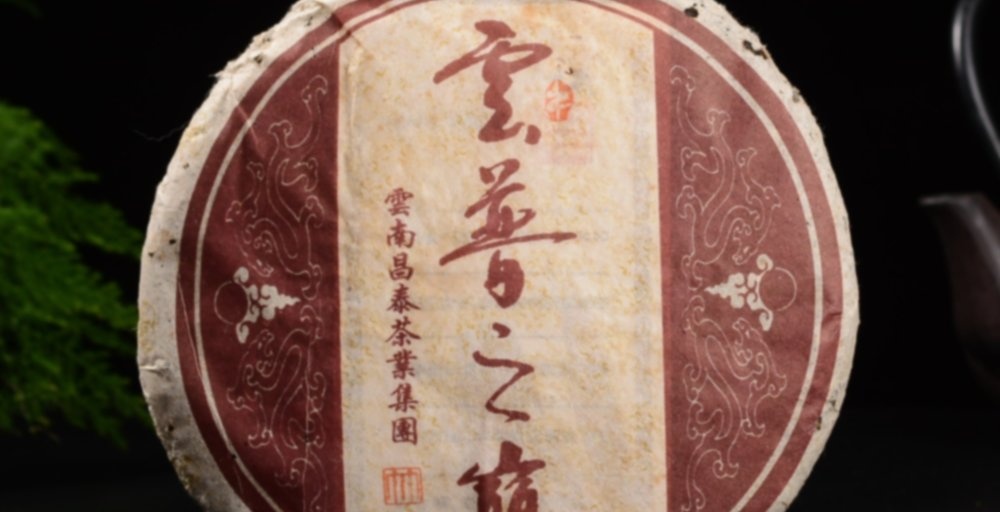 雲普之
雲南昌泰茶業集團